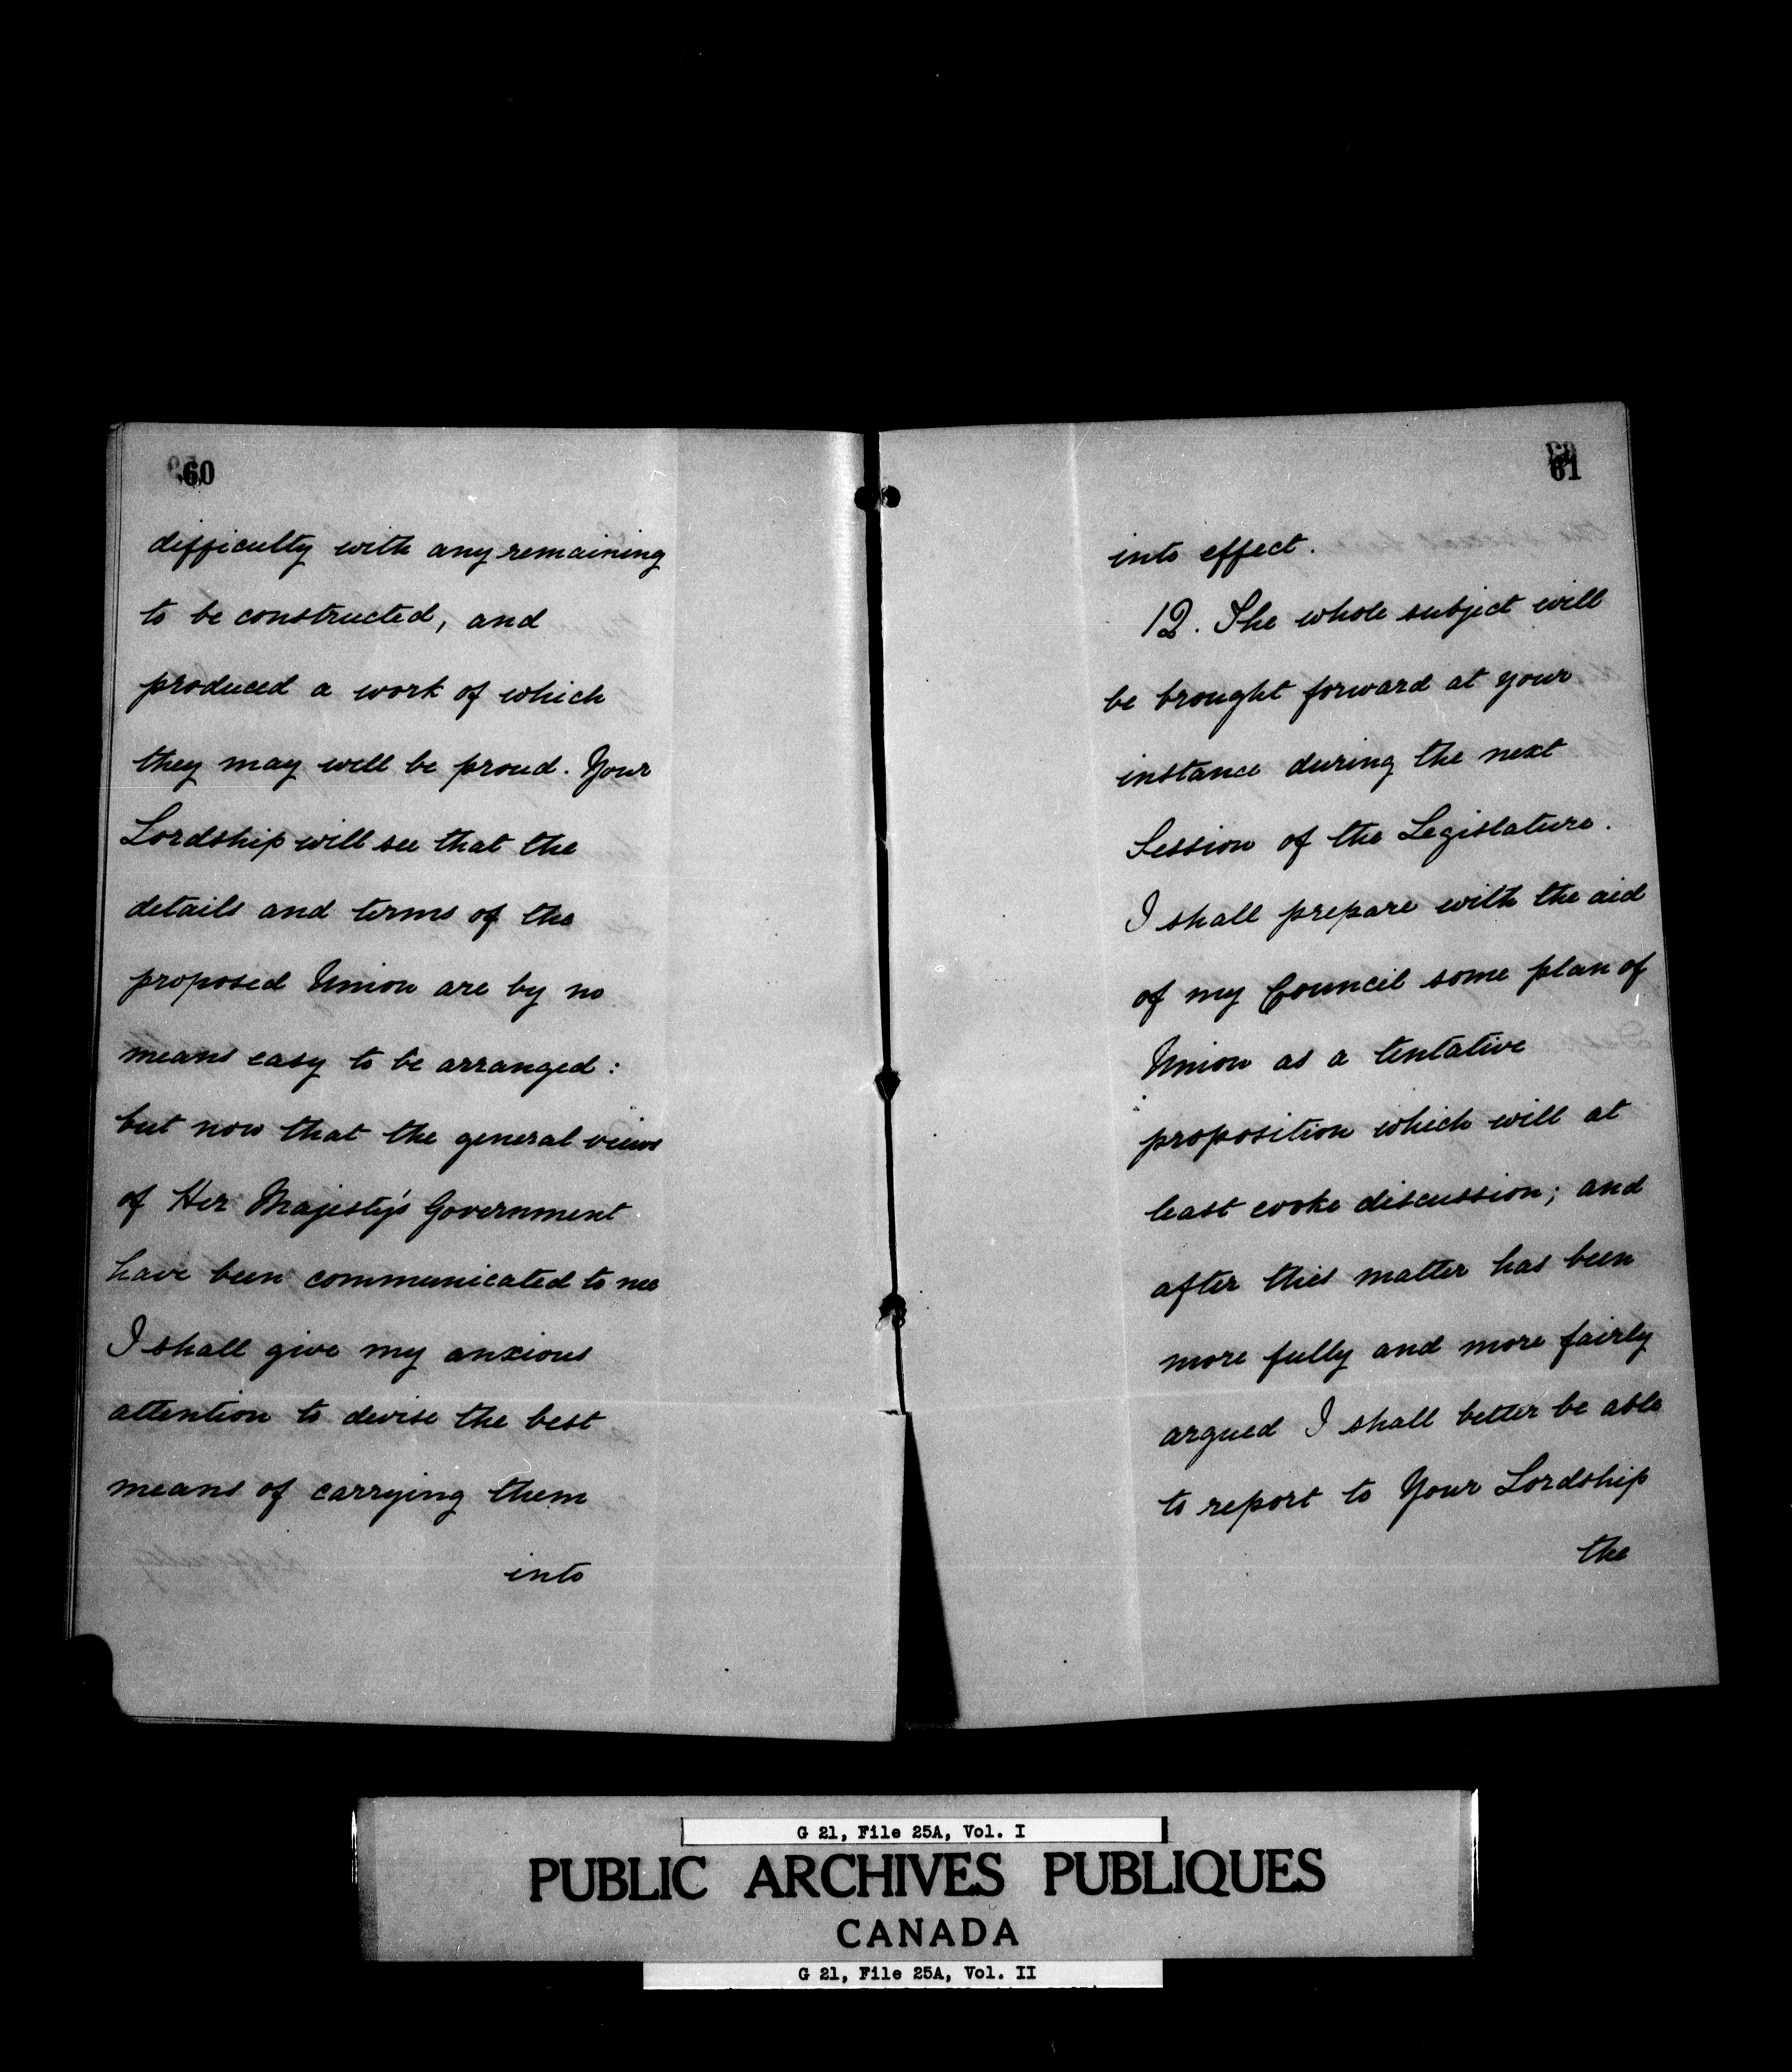 60
difficulty with any remaining
to be constructed, and
produced a work of which
they may well be proud. Your
Lordship will see that the
details and terms of the
proposed Union are by no
means easy to be arranged:
but now that the general views
of Her Majesty's Government
have been communicated to me
I shall give my anxious
attention to devise the best
means of carrying them
into
61
into effect.
12. The whole subject will
be brought forward at your
instance during the next
Session of the Legislature.
I shall prepare with the aid
of my Council some plan of
Union as a tentative
proposition which will at
least evoke discussion; and
after this matter has been
more fully and more fairly
argued I shall better be able
to report to Your Lordship
the
G 21, File 25A, Vol. I
PUBLIC ARCHIVES PUBLIQUES
CANADA
G 21, File 25A, Vol. II